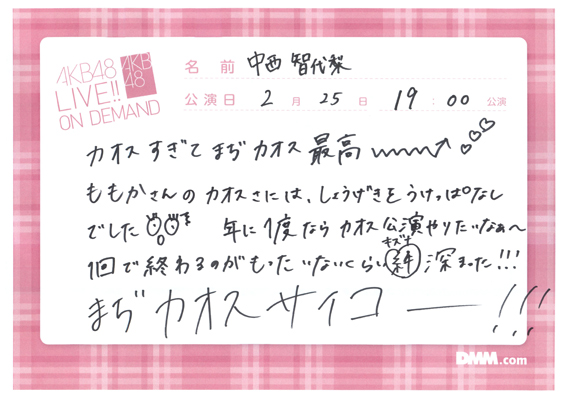 AKB48
LIVE!!
ON DEMAND
AKB
48
名 前 中西 智代梨
公演日 2 月 25 日 19 : 00 公演
カオスすぎて まぢカオス 最高
ももかさんの カオスさには、しょうげきをうけっぱなし
でした 年に1度なら カオス公演やりたいなぁ〜
キズナ
1回で終わるのがもったいないくらい絆 深まった!!!
まぢカオスサイコー!!!
DMM.com